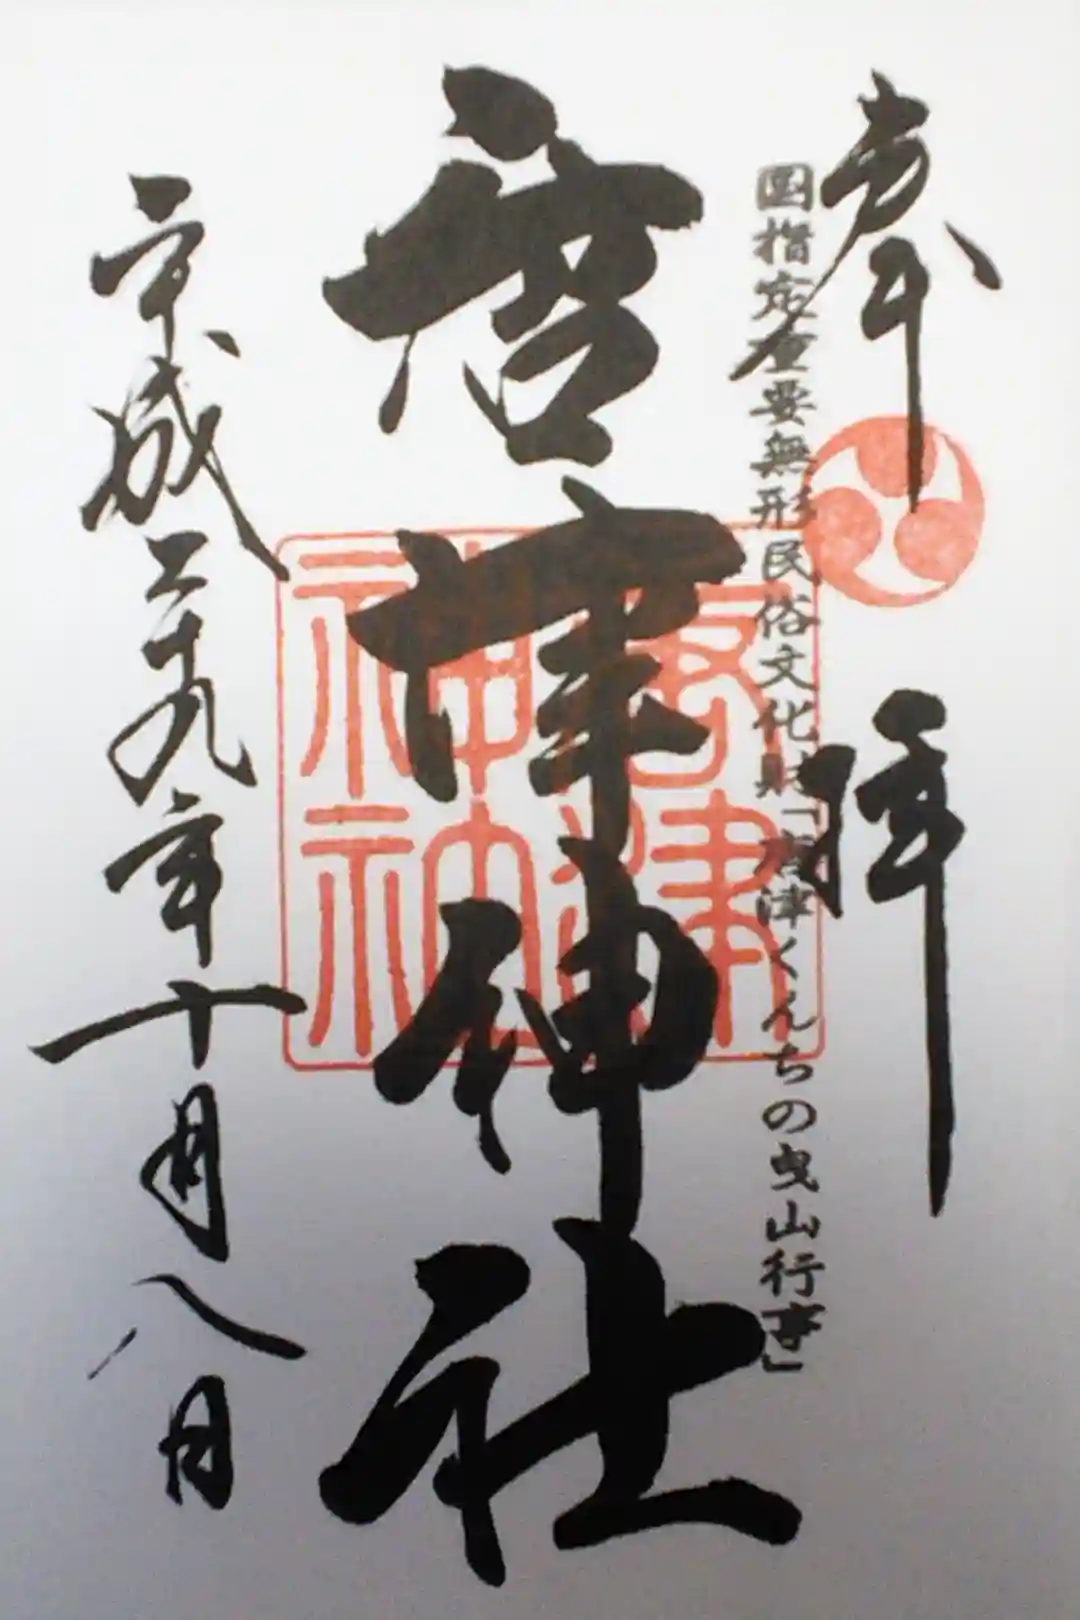 奉拝
国指定重要無形民俗文化財「唐津くんちの曳山行事」
唐津神社
唐津神社
平成二十九年十月八日